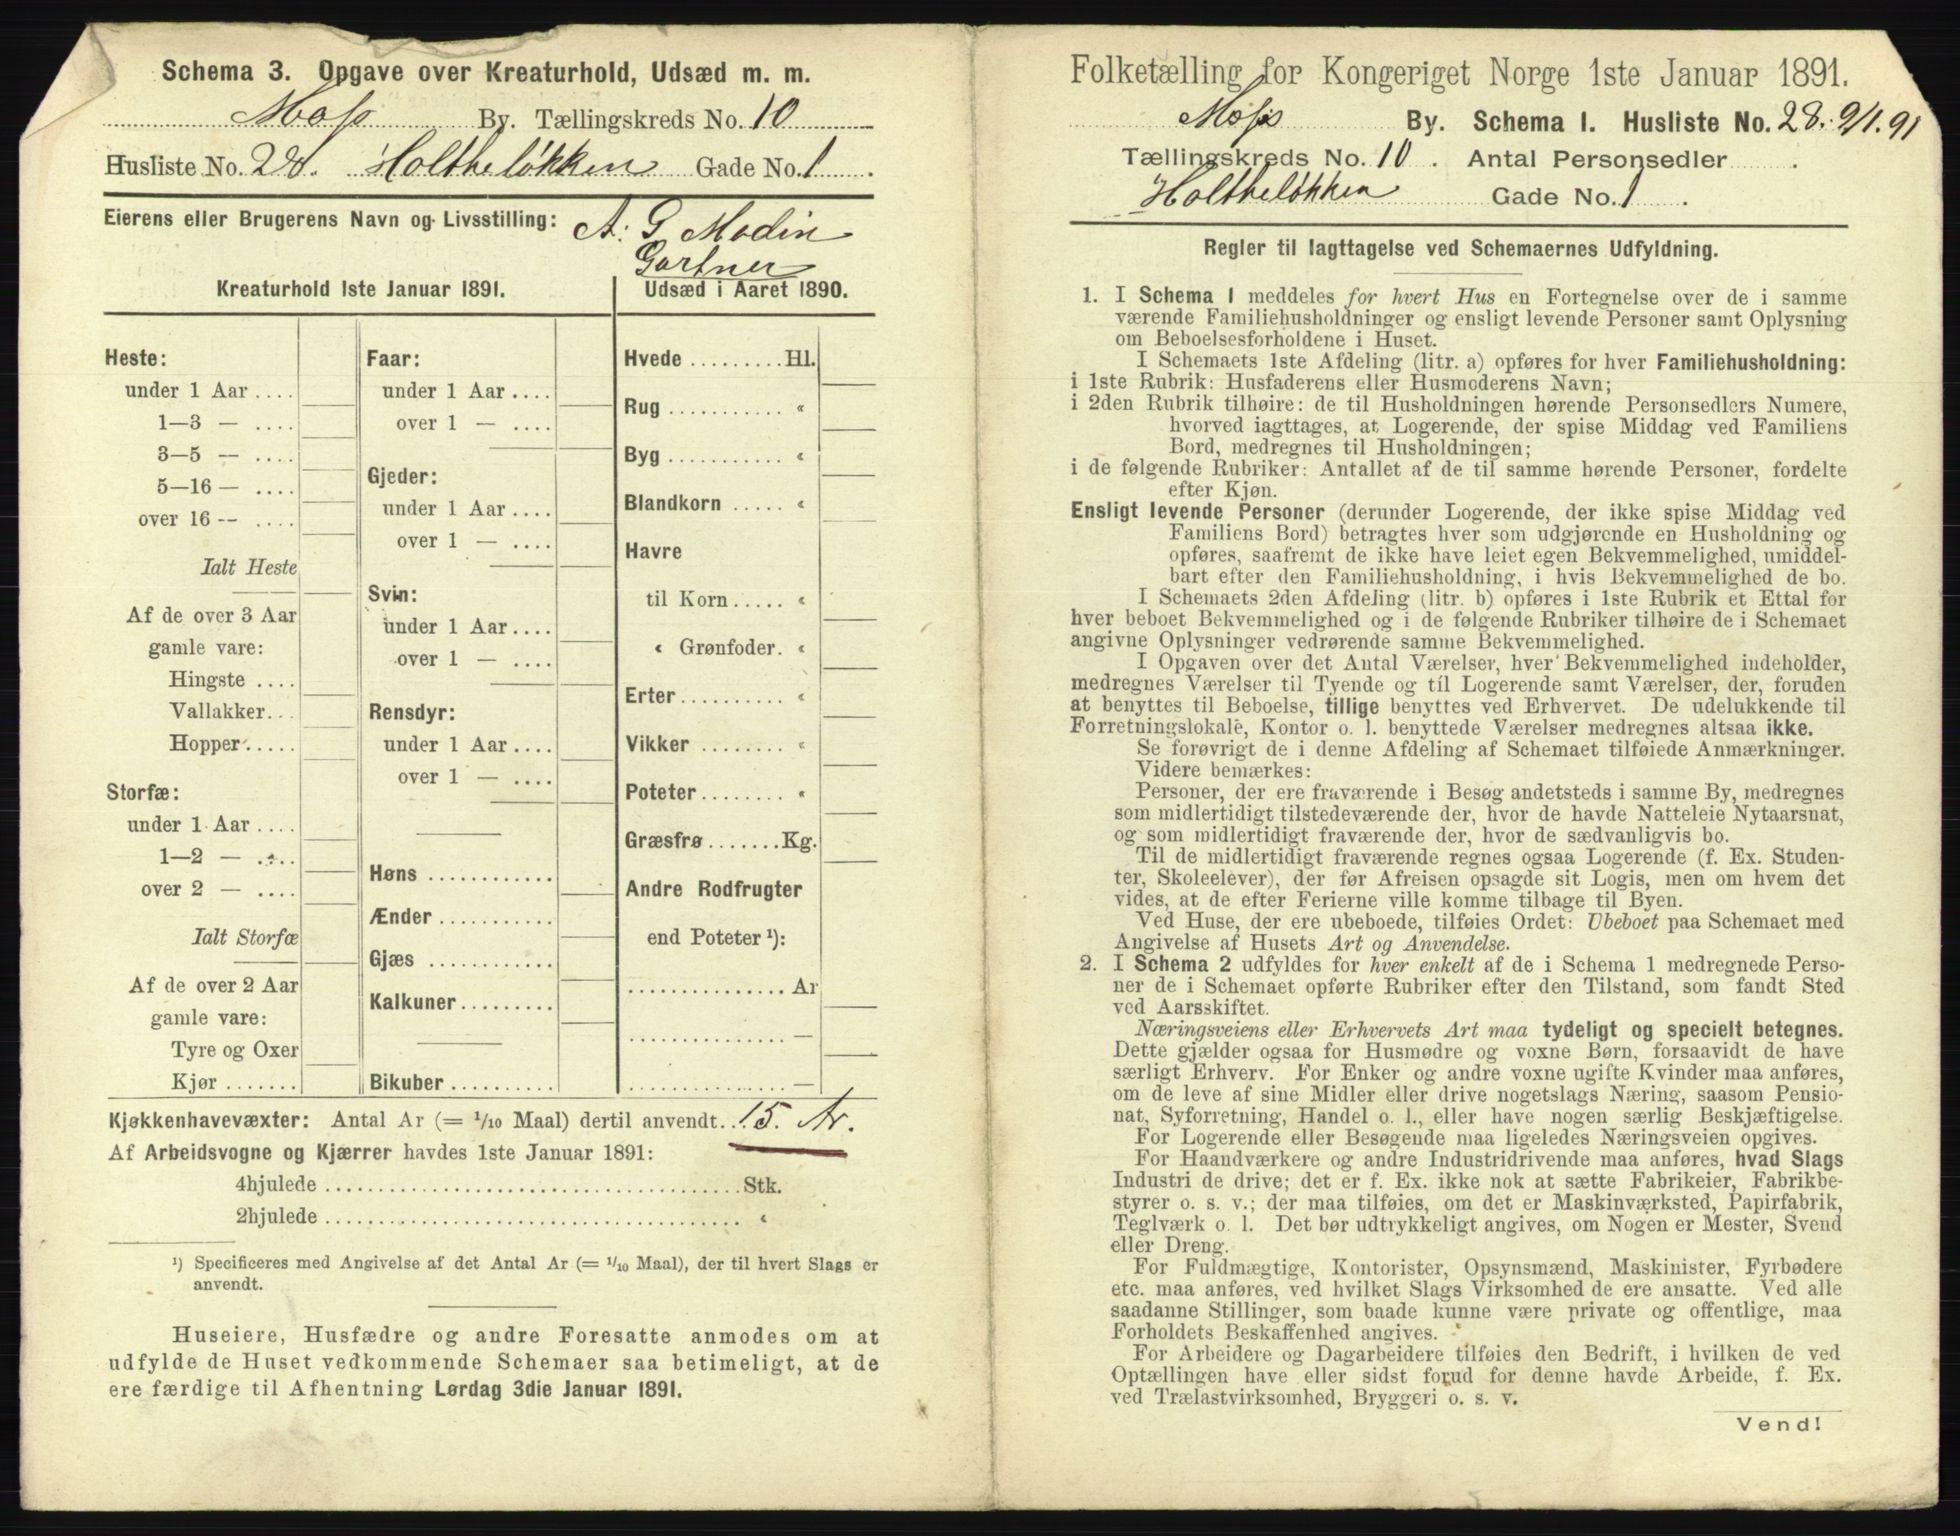 Schema 3. Opgave over Kreaturhold, Udsæd m. m.
Moss By. Tællingskreds No. 10
Husliste No. 28. Holtheløkken Gade No. 1.
Eierens eller Brugerens Navn og Livsstilling: A. G. Modin
Gartner
Kreaturhold 1ste Januar 1891.
Heste:
under 1 Aar ....
1—3 — ....
3—5 — ....
5—16 — ....
over 16 -- ....
Ialt Heste
Af de over 3 Aar
gamle vare:
Hingste ....
Vallakker...
Hopper.....
Storfæ:
under 1 Aar ....
1—2 — ....
over 2 — ....
Ialt Storfæ
Af de over 2 Aar
gamle vare:
Tyre og Oxer
Kjør .......
Faar:
under 1 Aar ....
over 1 — ....
Gjeder:
under 1 Aar ....
over 1 — ....
Svin:
under 1 Aar ....
over 1 — ....
Rensdyr:
under 1 Aar ....
over 1 — ....
Høns ............
Ænder ...........
Gjæs ............
Kalkuner.........
Bikuber ..........
Udsæd i Aaret 1890.
Hvede .........Hl.
Rug ........... «
Byg ........... «
Blandkorn ..... «
Havre
til Korn ..... «
« Grønfoder. «
Erter .......... «
Vikker ........ «
Poteter ........ «
Græsfrø .......Kg.
Andre Rodfrugter
end Poteter ¹):
............... Ar
............... —
............... —
Kjøkkenhavevæxter: Antal Ar (= 1/10 Maal) dertil anvendt.. 15. Ar.
Af Arbeidsvogne og Kjærrer havdes 1ste Januar 1891:
4hjulede ........................................ Stk.
2hjulede ........................................ «
¹) Specificeres med Angivelse af det Antal Ar (= 1/10 Maal), der til hvert Slags er
anvendt.
Huseiere, Husfædre og andre Foresatte anmodes om at
udfylde de Huset vedkommende Schemaer saa betimeligt, at de
ere færdige til Afhentning Lørdag 3die Januar 1891.
Folketælling for Kongeriget Norge 1ste Januar 1891.
Moss By. Schema I. Husliste No. 28. 9/1.91
Tællingskreds No. 10. Antal Personsedler .
Holtheløkken Gade No. 1.
Regler til Iagttagelse ved Schemaernes Udfyldning.
1. I Schema 1 meddeles for hvert Hus en Fortegnelse over de i samme
værende Familiehusholdninger og ensligt levende Personer samt Oplysning
om Beboelsesforholdene i Huset.
I Schemaets 1ste Afdeling (litr. a) opføres for hver Familiehusholdning:
i 1ste Rubrik: Husfaderens eller Husmoderens Navn;
i 2den Rubrik tilhøire: de til Husholdningen hørende Personsedlers Numere,
hvorved iagttages, at Logerende, der spise Middag ved Familiens
Bord, medregnes til Husholdningen;
i de følgende Rubriker: Antallet af de til samme hørende Personer, fordelte
efter Kjøn.
Ensligt levende Personer (derunder Logerende, der ikke spise Middag ved
Familiens Bord) betragtes hver som udgjørende en Husholdning og
opføres, saafremt de ikke have leiet egen Bekvemmelighed, umiddel-
bart efter den Familiehusholdning, i hvis Bekvemmelighed de bo.
I Schemaets 2den Afdeling (litr. b) opføres i 1ste Rubrik et Ettal for
hver beboet Bekvemmelighed og i de følgende Rubriker tilhøire de i Schemaet
angivne Oplysninger vedrørende samme Bekvemmelighed.
I Opgaven over det Antal Værelser, hver Bekvemmelighed indeholder,
medregnes Værelser til Tyende og til Logerende samt Værelser, der, foruden
at benyttes til Beboelse, tillige benyttes ved Erhvervet. De udelukkende til
Forretningslokale, Kontor o. l. benyttede Værelser medregnes altsaa ikke.
Se forøvrigt de i denne Afdeling af Schemaet tilføiede Anmærkninger.
Videre bemærkes:
Personer, der ere fraværende i Besøg andetsteds i samme By, medregnes
som midlertidigt tilstedeværende der, hvor de havde Natteleie Nytaarsnat,
og som midlertidigt fraværende der, hvor de sædvanligvis bo.
Til de midlertidigt fraværende regnes ogsaa Logerende (f. Ex. Studen-
ter, Skoleelever), der før Afreisen opsagde sit Logis, men om hvem det
vides, at de efter Ferierne ville komme tilbage til Byen.
Ved Huse, der ere ubeboede, tilføies Ordet: Ubeboet paa Schemaet med
Angivelse af Husets Art og Anvendelse.
2. I Schema 2 udfyldes for hver enkelt af de i Schema 1 medregnede Perso-
ner de i Schemaet opførte Rubriker efter den Tilstand, som fandt Sted
ved Aarsskiftet.
Næringsveiens eller Erhvervets Art maa tydeligt og specielt betegnes.
Dette gjælder ogsaa for Husmødre og voxne Børn, forsaavidt de have
særligt Erhverv. For Enker og andre voxne ugifte Kvinder maa anføres,
om de leve af sine Midler eller drive nogetslags Næring, saasom Pensio-
nat, Syforretning, Handel o. l., eller have nogen særlig Beskjæftigelse.
For Logerende eller Besøgende maa ligeledes Næringsveien opgives.
For Haandværkere og andre Industridrivende maa anføres, hvad Slags
Industri de drive; det er f. Ex. ikke nok at sætte Fabrikeier, Fabrikbe-
styrer o. s. v.; der maa tilføies, om det er Maskinværksted, Papirfabrik,
Teglværk o. l. Det bør udtrykkeligt angives, om Nogen er Mester, Svend
eller Dreng.
For Fuldmægtige, Kontorister, Opsynsmænd, Maskinister, Fyrbødere
etc. maa anføres, ved hvilket Slags Virksomhed de ere ansatte. Ved alle
saadanne Stillinger, som baade kunne være private og offentlige, maa
Forholdets Beskaffenhed angives.
For Arbeidere og Dagarbeidere tilføies den Bedrift, i hvilken de ved
Optællingen have eller sidst forud for denne havde Arbeide, f. Ex.
ved Trælastvirksomhed, Bryggeri o. s. v.
Vend!